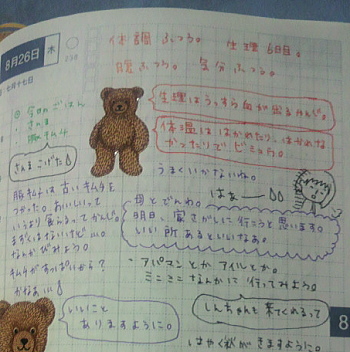 8月26日 木
七月十七日
体調ふつう。 生理6日目。
腹ふつう。 気分ふつう。
今日のごはん
・さんま
・豚キムチ
さんまこげた
生理はうっすら血が出るかんじ。
体温ははかめたり、はかれな
かったりでビミョウ。
うまくいかないね。
はぁー
豚キムチは古いキムチを
つかった。おいしいって
いうより食べるってかんじ。
まずくはないけど…。
なんかびみょう。
キムチがすっぱいから?
かなぁ…。
母とでんわ。
明日、家さがしに行こうと思います。
いい所あるといいなぁ。
・アパマンとかアイルとか。
ミニミニなんかに行ってみよう。
しんちゃんも来てくれるって
いいこと
ありますように。
はやく秋がきますように。
8